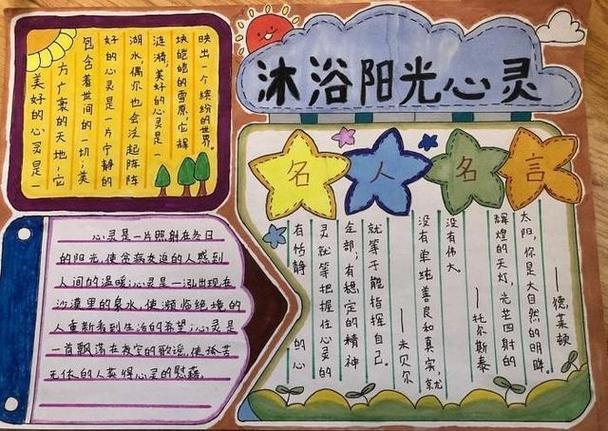 沐浴阳光心灵
美好的心灵是一
方广袤的天地,它
包含着世间的一切;美
好的心灵是一片宁静的
湖水,偶尔也会泛起阵阵
涟漪;美好的心灵是一
块皑皑的雪原,它辉
映出一个缤纷的世界。
心灵是一片照射在冬日
的阳光,使贫病交迫的人感到
人间的温暖;心灵是一泓出现在
沙漠里的泉水,使濒临绝境的
人重新看到生活的希望;心灵是
一首飘荡在夜空的歌谣,使孤苦
无依的人获得心灵的慰藉。
名人名言
有恬静的心
灵就等把握住心灵的
全部;有稳定的精神
就等于能指挥自己。
——米贝尔
没有单纯善良和真实,就
没有伟大。
——托尔斯泰
辉煌的天灯,光芒四射的
太阳,你是大自然的明眸。
——德莱顿